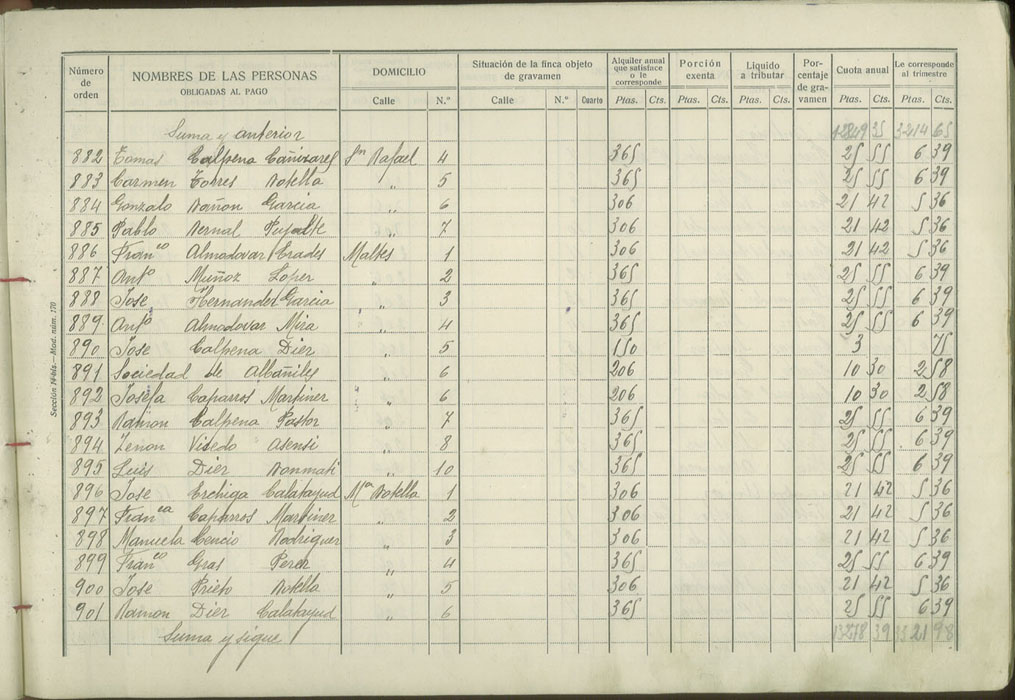 Número de orden NOMBRES DE LAS PERSONAS OBLIGADAS AL PAGO DOMICILIO Calle N.º Situación de la finca objeto de gravamen Calle N.º Cuarto Alquiler anual que satisface o le corresponde Ptas. Cts. Porción exenta Ptas. Cts. Liquido a tributar Ptas. Cts. Porcentaje de gravamen Cuota anual Ptas. Cts. Le corresponde al trimestre Ptas. Cts.
Suma y anterior 12849 35 3214 65
882 Tomas Calpena Cañizares Sn Rafael 4 365 25 55 6 39
883 Carmen Torres Botella " 5 365 25 55 6 39
884 Gonzalo Bañon Garcia " 6 306 21 42 5 36
885 Pablo Bernal Pujalte " 7 306 21 42 5 36
886 Franco Almodovar Erades Maltes 1 306 21 42 5 36
887 Anto Muñoz Loper " 2 365 25 55 6 39
888 Jose Hernander Garcia " 3 365 25 55 6 39
889 Anto Almodovar Mira " 4 365 25 55 6 39
890 Jose Calpena Dier " 5 150 3 75
891 Sociedad de Albañiles " 6 206 10 30 2 58
892 Josefa Caparros Martiner " 6 206 10 30 2 58
893 Ramon Calpena Pastor " 7 365 25 55 6 39
894 Zenon Visedo Asensi " 8 365 25 55 6 39
895 Luis Dier Bonmati " 10 365 25 55 6 39
896 Jose Erchiga Calatayud Ma Botella 1 306 21 42 5 36
897 Franca Caparros Martiner " 2 306 21 42 5 36
898 Manuela Cencio Rodriguer " 3 306 21 42 5 36
899 Franco Gras Perer " 4 365 25 55 6 39
900 Jose Prieto Botella " 5 306 21 42 5 36
901 Ramon Dier Calatayud " 6 365 25 55 6 39
Suma y sigue 13278 39 3321 98
Sección 14-bis.—Mod. núm. 170